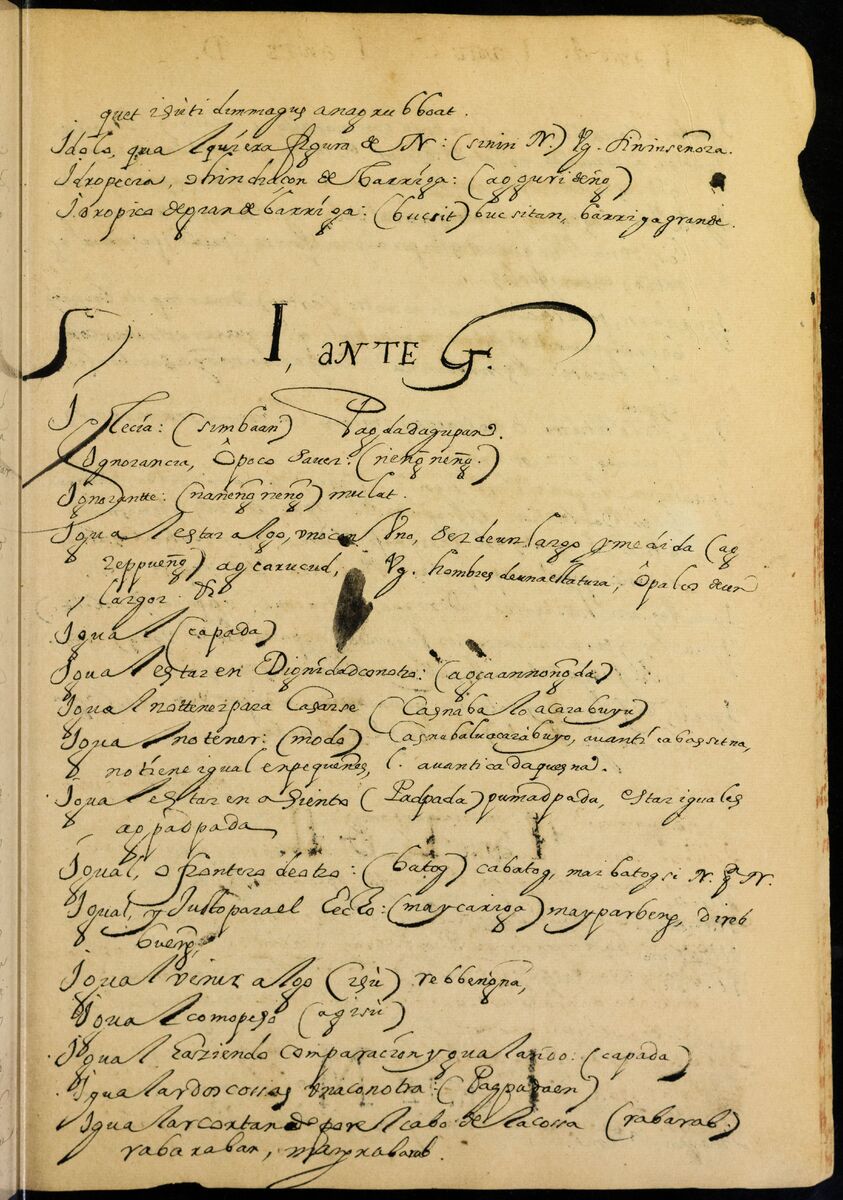 quet isùti dimmagus anagrubboat.
Idolo, qualquiera figura de N: (sinin N.) Vg. sininseñora.
Idropecia, o hinchaçon de barriga: (agguri deñg)
Idropico degrande barriga: (bucsit) bucsitan, barriga grande.
I, ANTE G.
Iglecía: (simbaan) Pagdadagupan.
Ignorancia, ô poco saver: (neñgneñg.)
Ignorantte: (nañeñgneñg) mulat.
Igual estar algo, vno con vno, ser de un largo y medida (ag
reppeñg) agcarucud, Vg. hombres de una estatura, ô palos de un
largor &.
Igual (capada)
Igual estar en Dignidad con otro: (agcaannoñg da)
Igual no ttener para casarse (Casnaba lo acarabuyu)
Igual no tener: (modo) Casnabaluacarabuyo, auantí cabassitna,
no tiene igual en pequeñes, l. auanticadaquesna.
Igual estar en asiento (Padpada) pumadpada, estar iguales
agpadpada
Igual, o frontero de otro: (batog) cabatog, maibatog si N. N.
Igual, y Justo para el Eecho: (maycariga) mayparbeng,
bueng,
Igual venir algo (isù) rebbengna,
Igual como peso (agisù)
Igual haziendo comparacion ygualando: (capada)
Igualar dos cossas vna con otra: (Pagpadaen)
Igualar cortando por el cabo de la cossa (rabarab.)
rabaraban, marabarab.